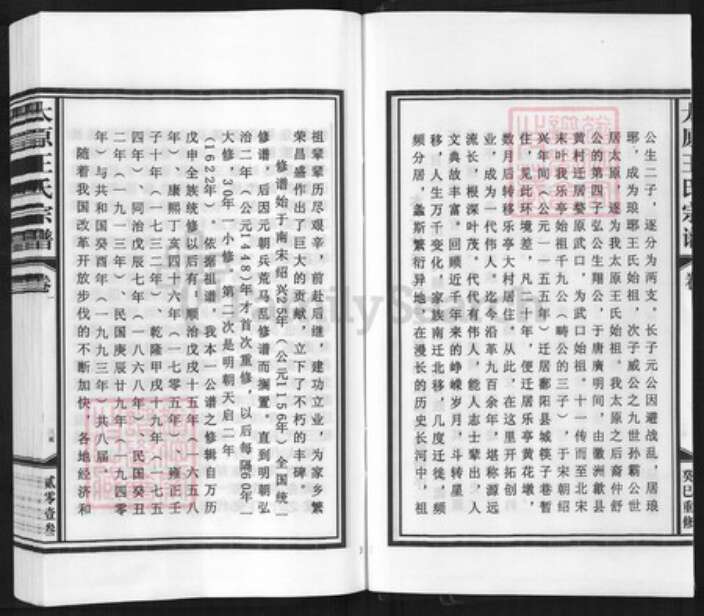 太原王氏宗谱
癸巳重修
公生二子，遂分为两支。长子元公因避战乱，居琅
琊，成为琅琊王氏始祖，次子威公之九世孙霸公世
居太原，遂为我太原王氏始祖。我太原之后裔仲舒
公的第四子弘公生翔公，于唐广明间，由徽洲歙县
黄村迁居婺原武口，为武口始祖。十一传而至北宋
末叶我乐亭始祖千九公（畴公的三子），于宋朝绍
兴年间（公元一一五五年）迁居鄱阳县城筷子巷暂
住，见此环境差，凡三十年，便迁居乐亭黄花墩，
数月后转移乐亭大村居住，从此，在这里开拓创
业，成为一代伟人。迄今沿革九百余年，堪称源远
流长，根深叶茂。代代有伟人，能人志士辈出，人
文典故丰富。回顾近千年来的峥嵘岁月，斗转星
移，人生万千变化，家族南迁北移，几度迁徙，频
频分居，螽斯繁衍异地。在漫长的历史长河中，祖
祖辈辈历尽艰辛，前赴后继，建功立业，为家乡繁
荣昌盛作出了巨大的贡献，立下了不朽的丰碑。
修谱始于南宋绍兴25年（公元1156年）全国统一
修谱，后因元朝兵荒马乱修谱而搁置。直到明朝弘
治二年（公元1448）年才首次重修，以后每隔60年一
大修，30年一小修，第二次是明朝天启二年
(1622年）。依据祖谱，我本一公谱之修辑自万历
戊申全族统修以后有：顺治戊戌十五年（一六五八
年）、康熙丁亥四十六年（一七〇五年）、雍正壬
子十年（一七三二年）、乾隆甲戌十九年（一七五
四年）、同治戊辰七年（一八六八年）、民国癸丑
二年（一九一三年）、民国庚辰廿九年（一九四零
年）与共和国癸酉年（一九九三年）共八届。
随着我国改革开放步伐的不断加快，各地经济和
太原王氏宗谱
卷一
贰零壹叁
FamilySearch